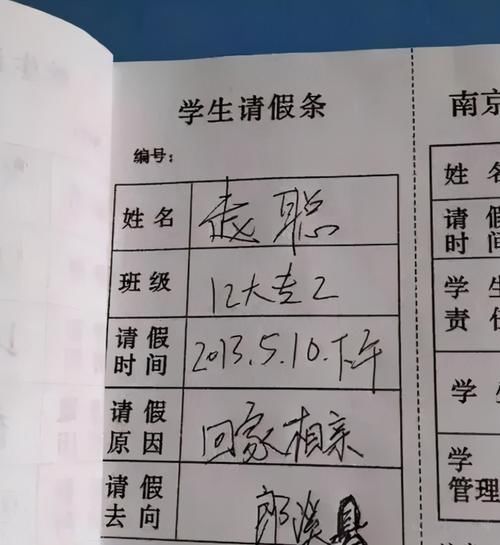 学生请假条
编号：
姓名 聪
班级 12大专2
请假时间 2013.5.10.下午
请假原因 回家相亲
请假去向 郎溪县
南京
姓名
请假
时间
学生
责任
学
学
管理